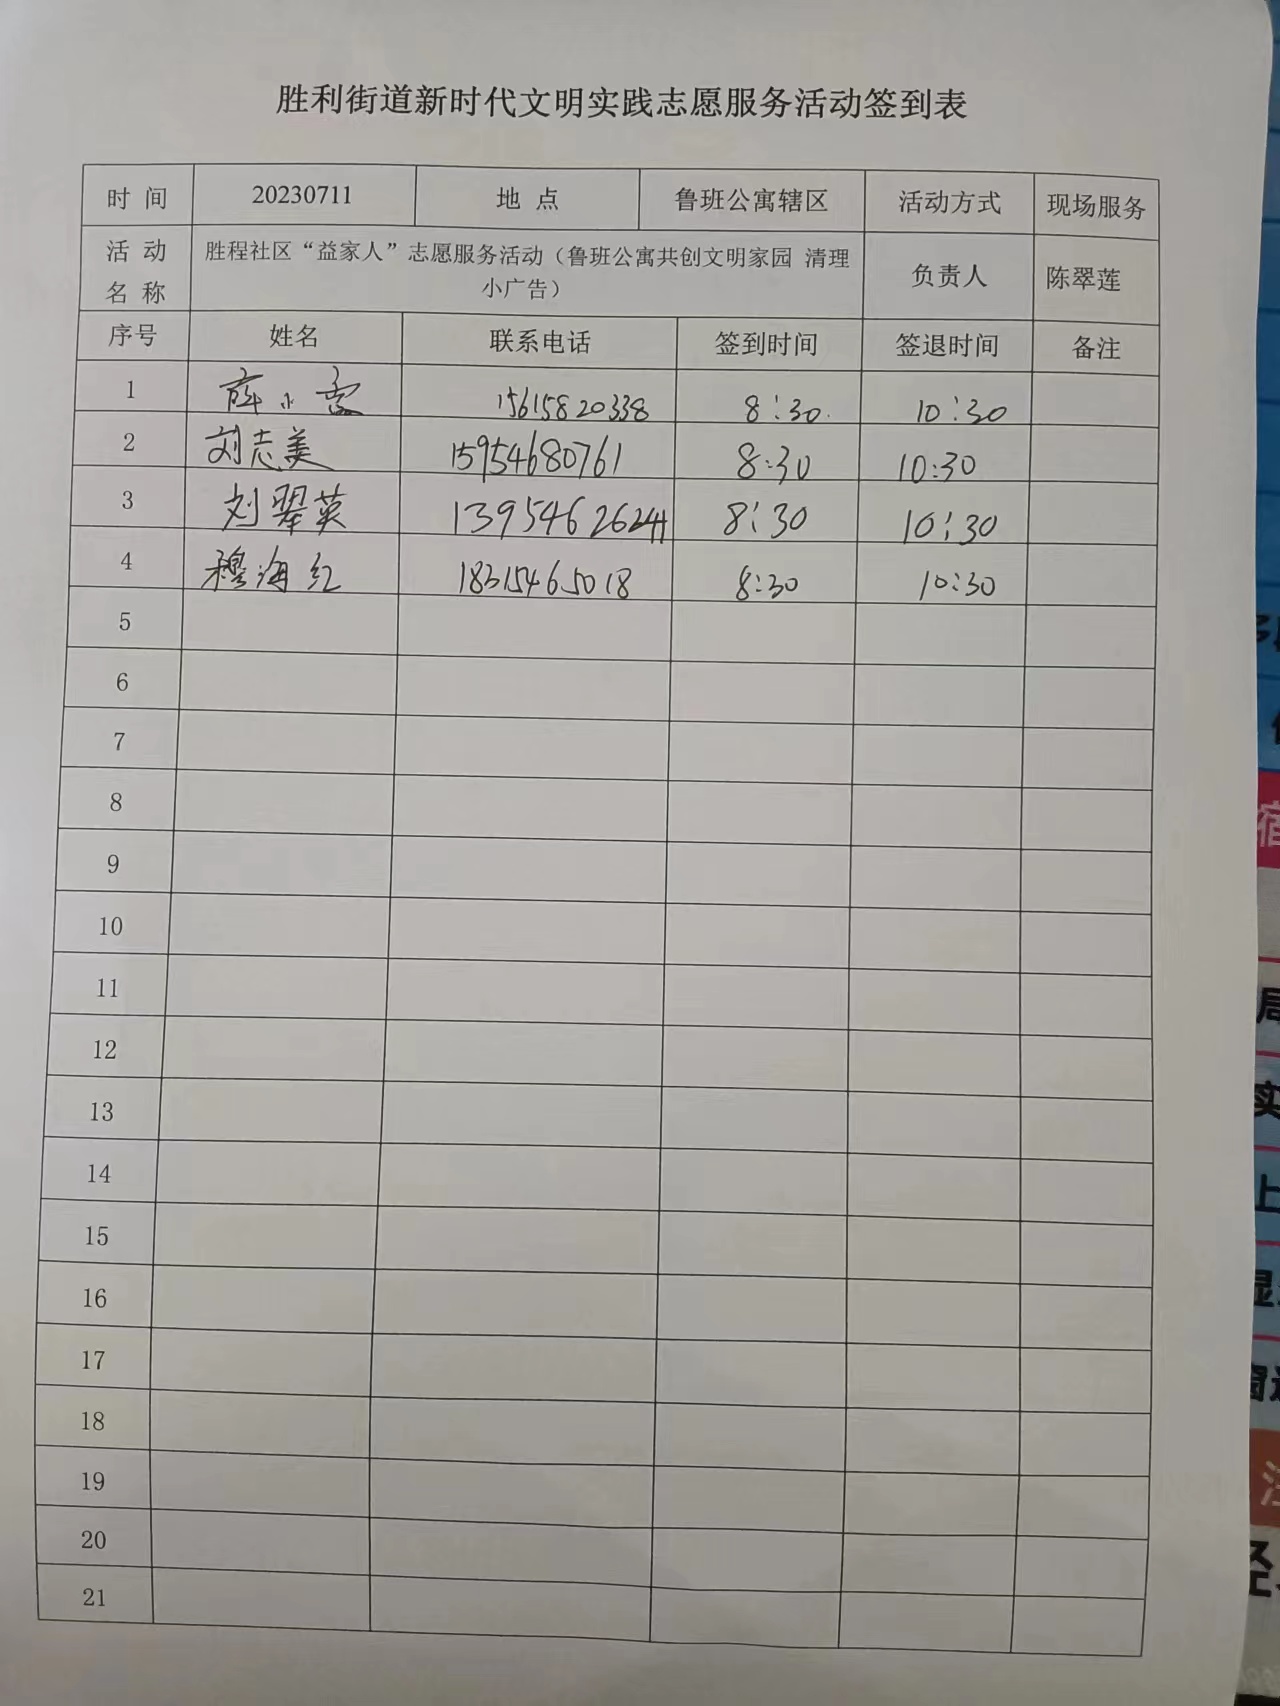 胜利街道新时代文明实践志愿服务活动签到表
时 间 20230711 地 点 鲁班公寓辖区 活动方式 现场服务
活 动 名 称 胜程社区“益家人”志愿服务活动（鲁班公寓共创文明家园 清理
小广告） 负责人 陈翠莲
序号 姓名 联系电话 签到时间 签退时间 备注
1 薛小 15615820338 8:30 10:30
2 刘志美 15954680761 8:30 10:30
3 刘翠英 13954626241 8:30 10:30
4 穆海红 18315465018 8:30 10:30
5
6
7
8
9
10
11
12
13
14
15
16
17
18
19
20
21